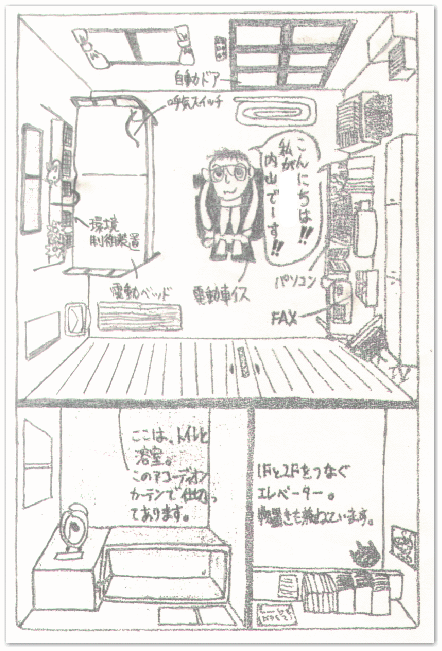 自動ドア
呼気スイッチ
こんにちは!!
私が
内山でーす!!
環境
制御装置
電動ベッド
電動車イス
パソコン
FAX
TV
ここは、トイレと
浴室。
このアコーディオン
カーテンで仕切っ
てあります。
1Fと2Fをつなぐ
エレベーター。
物置きも兼ねています。